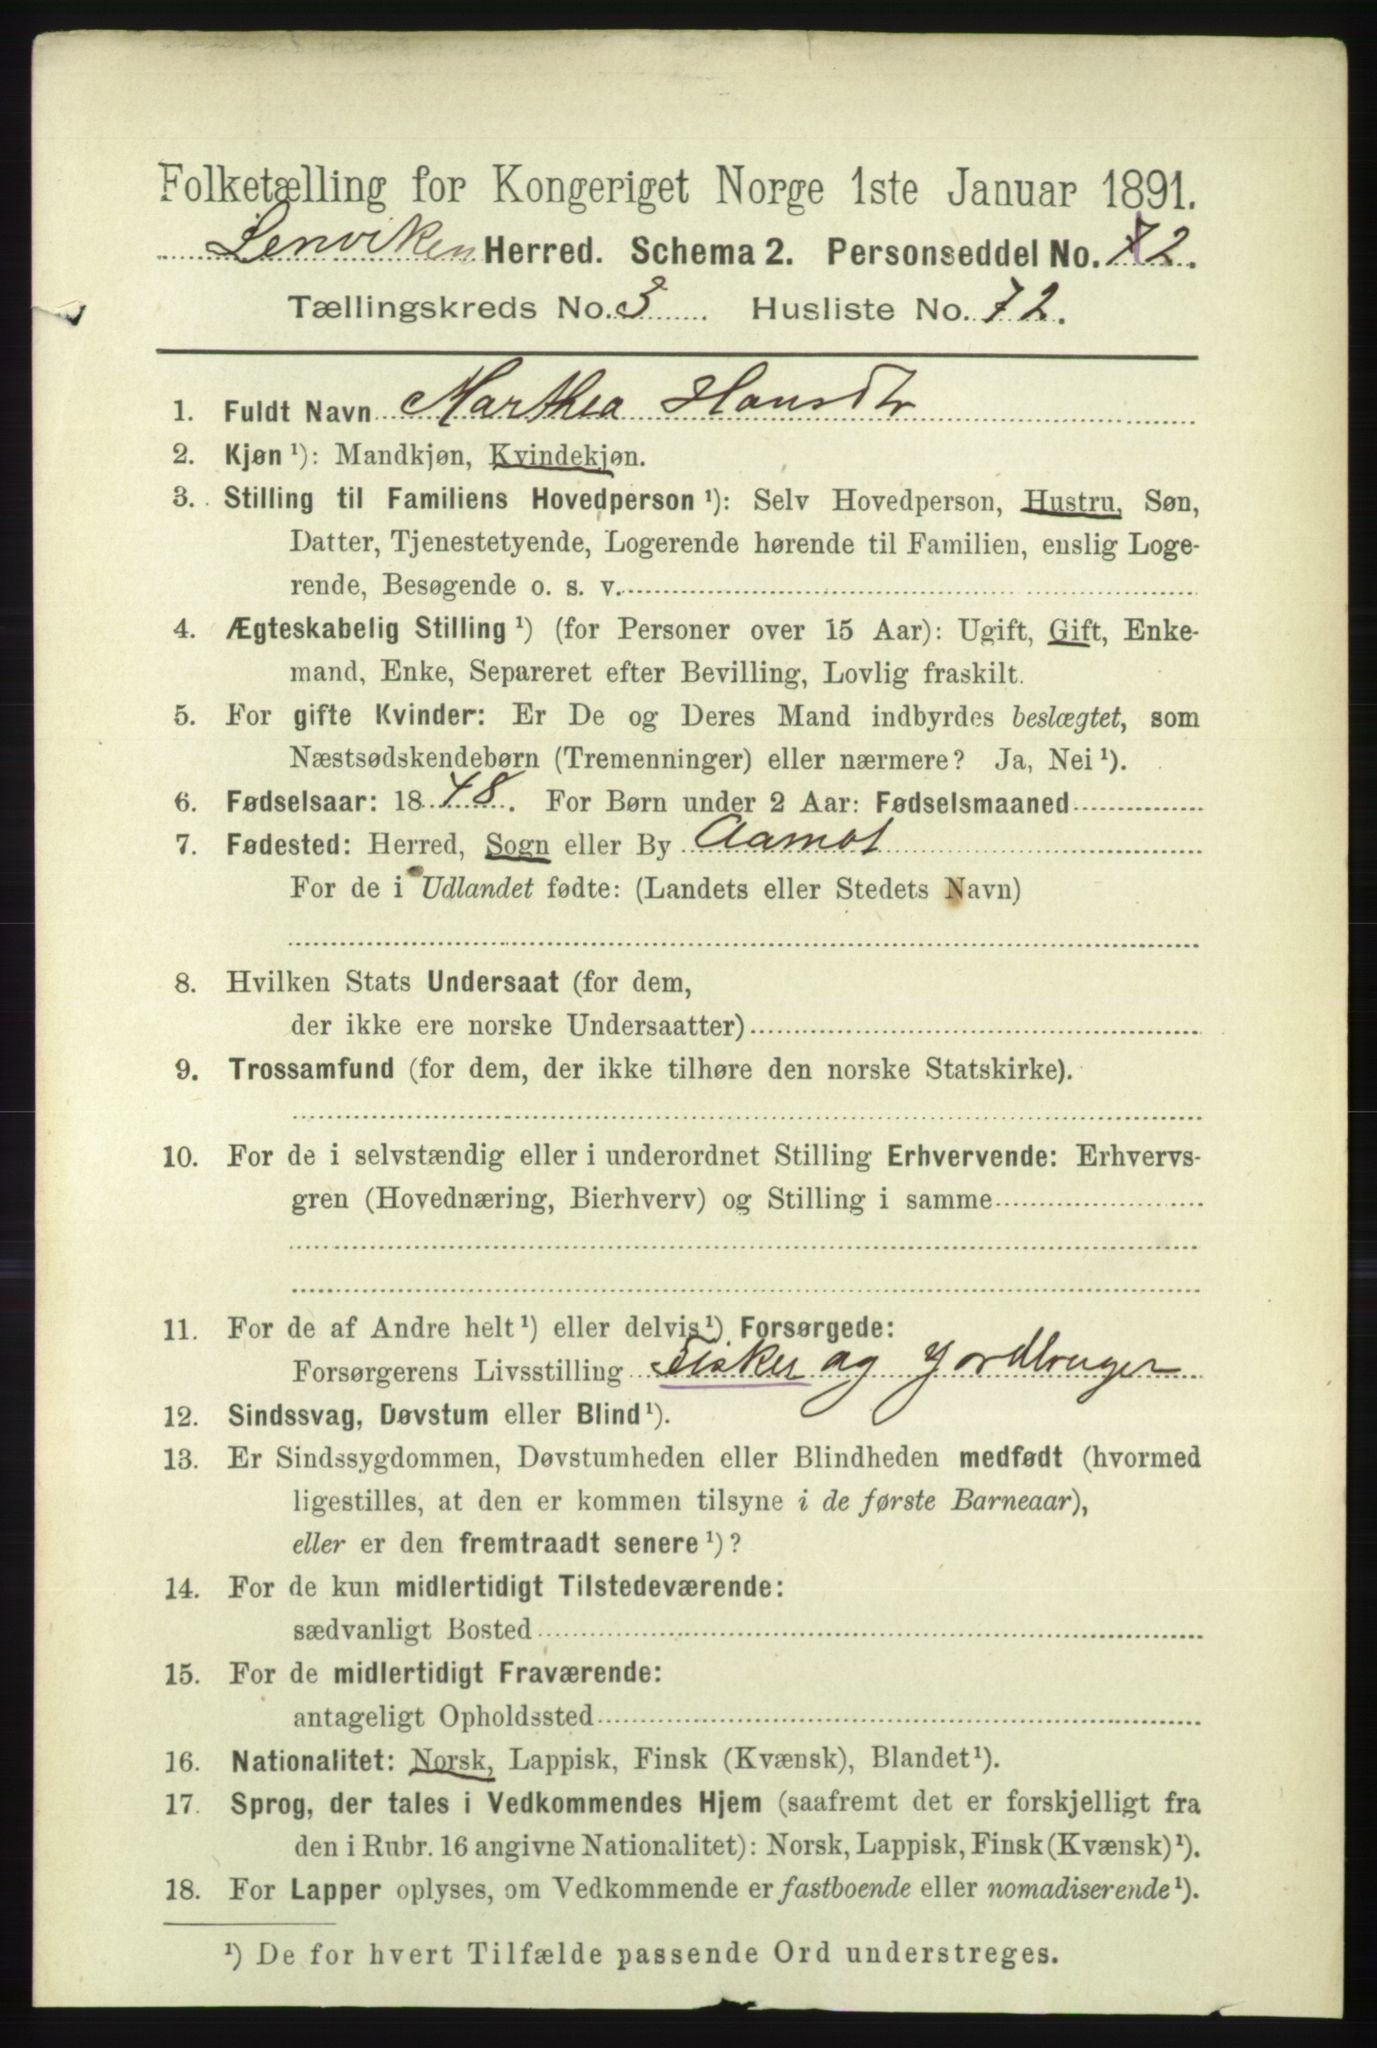 Folketælling for Kongeriget Norge 1ste Januar 1891.
Lenviken Herred. Schema 2. Personseddel No. 72.
Tællingskreds No. 3 Husliste No. 72.
1. Fuldt Navn Marthea Hansdtr
2. Kjøn ¹): Mandkjøn, Kvindekjøn.
3. Stilling til Familiens Hovedperson ¹): Selv Hovedperson, Hustru, Søn,
Datter, Tjenestetyende, Logerende hørende til Familien, enslig Loge-
rende, Besøgende o. s. v.
4. Ægteskabelig Stilling ¹) (for Personer over 15 Aar): Ugift, Gift, Enke-
mand, Enke, Separeret efter Bevilling, Lovlig fraskilt.
5. For gifte Kvinder: Er De og Deres Mand indbyrdes beslægtet, som
Næstsødskendebørn (Tremenninger) eller nærmere? Ja, Nei ¹).
6. Fødselsaar: 1848. For Børn under 2 Aar: Fødselsmaaned
7. Fødested: Herred, Sogn eller By Aamot
For de i Udlandet fødte: (Landets eller Stedets Navn)
8. Hvilken Stats Undersaat (for dem,
der ikke ere norske Undersaatter)
9. Trossamfund (for dem, der ikke tilhøre den norske Statskirke).
10. For de i selvstændig eller i underordnet Stilling Erhvervende: Erhvervs-
gren (Hovednæring, Bierhverv) og Stilling i samme
11. For de af Andre helt ¹) eller delvis ¹) Forsørgede:
Forsørgerens Livsstilling Fisker og Jordbruger
12. Sindssvag, Døvstum eller Blind ¹).
13. Er Sindssygdommen, Døvstumheden eller Blindheden medfødt (hvormed
ligestilles, at den er kommen tilsyne i de første Barneaar),
eller er den fremtraadt senere ¹)?
14. For de kun midlertidigt Tilstedeværende:
sædvanligt Bosted
15. For de midlertidigt Fraværende:
antageligt Opholdssted
16. Nationalitet: Norsk, Lappisk, Finsk (Kvænsk), Blandet ¹).
17. Sprog, der tales i Vedkommendes Hjem (saafremt det er forskjelligt fra
den i Rubr. 16 angivne Nationalitet): Norsk, Lappisk, Finsk (Kvænsk) ¹).
18. For Lapper oplyses, om Vedkommende er fastboende eller nomadiserende ¹).
¹) De for hvert Tilfælde passende Ord understreges.